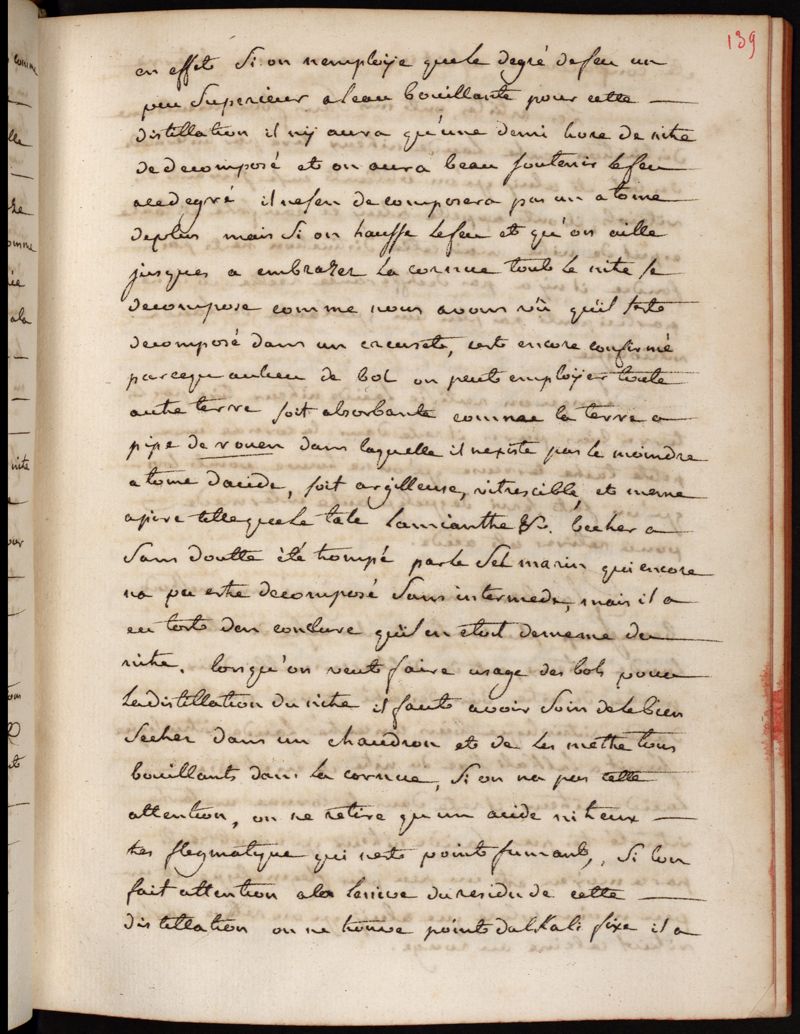 139
en effet Si on n'employe que le degré de feu un
peu Superieur a leau bouillante pour cette
distillation il n'y aura qu'une demi livre de nitre
de decomposé et on aura beau soutenir le feu
a ce degré il ne sen decomposera pas un atome
de plus mais Si on hausse le feu et qu'on aille
jusques a embrazer la cornue tout le nitre se
decompose comme nous avons vû qu'il sest
decomposé dans un creuset, cest encore confirmé
parcequ au lieu de bol on peut employer toute
autre terre soit absorbante comme la terre a
pipe de rouen dans laquelle il n'existe pas le moindre
atome dacide, soit argilleuse, vitrescible, et meme
apire telle que le talc Lamianthe &c. becher a
Sans doutte été trompé par le Sel marin qui encore
na pu estre decomposé Sans intermede, mais il a
eu tort den conclure qu'il en etoit de meme du
nitre. lorsqu'on veut faire usage des bols pour
la distillation du nitre il faut avoir Soin de le bien
Secher dans un chaudron et de les mettre tous
bouillants dans la cornue, Si on na pas cette
attention, on ne retire qu un acide nitreux
tres flegmatique qui nest point fumant, Si lon
fait attention a la lessive du residu de cette
distillation on ne trouve point dalkali fixe il a